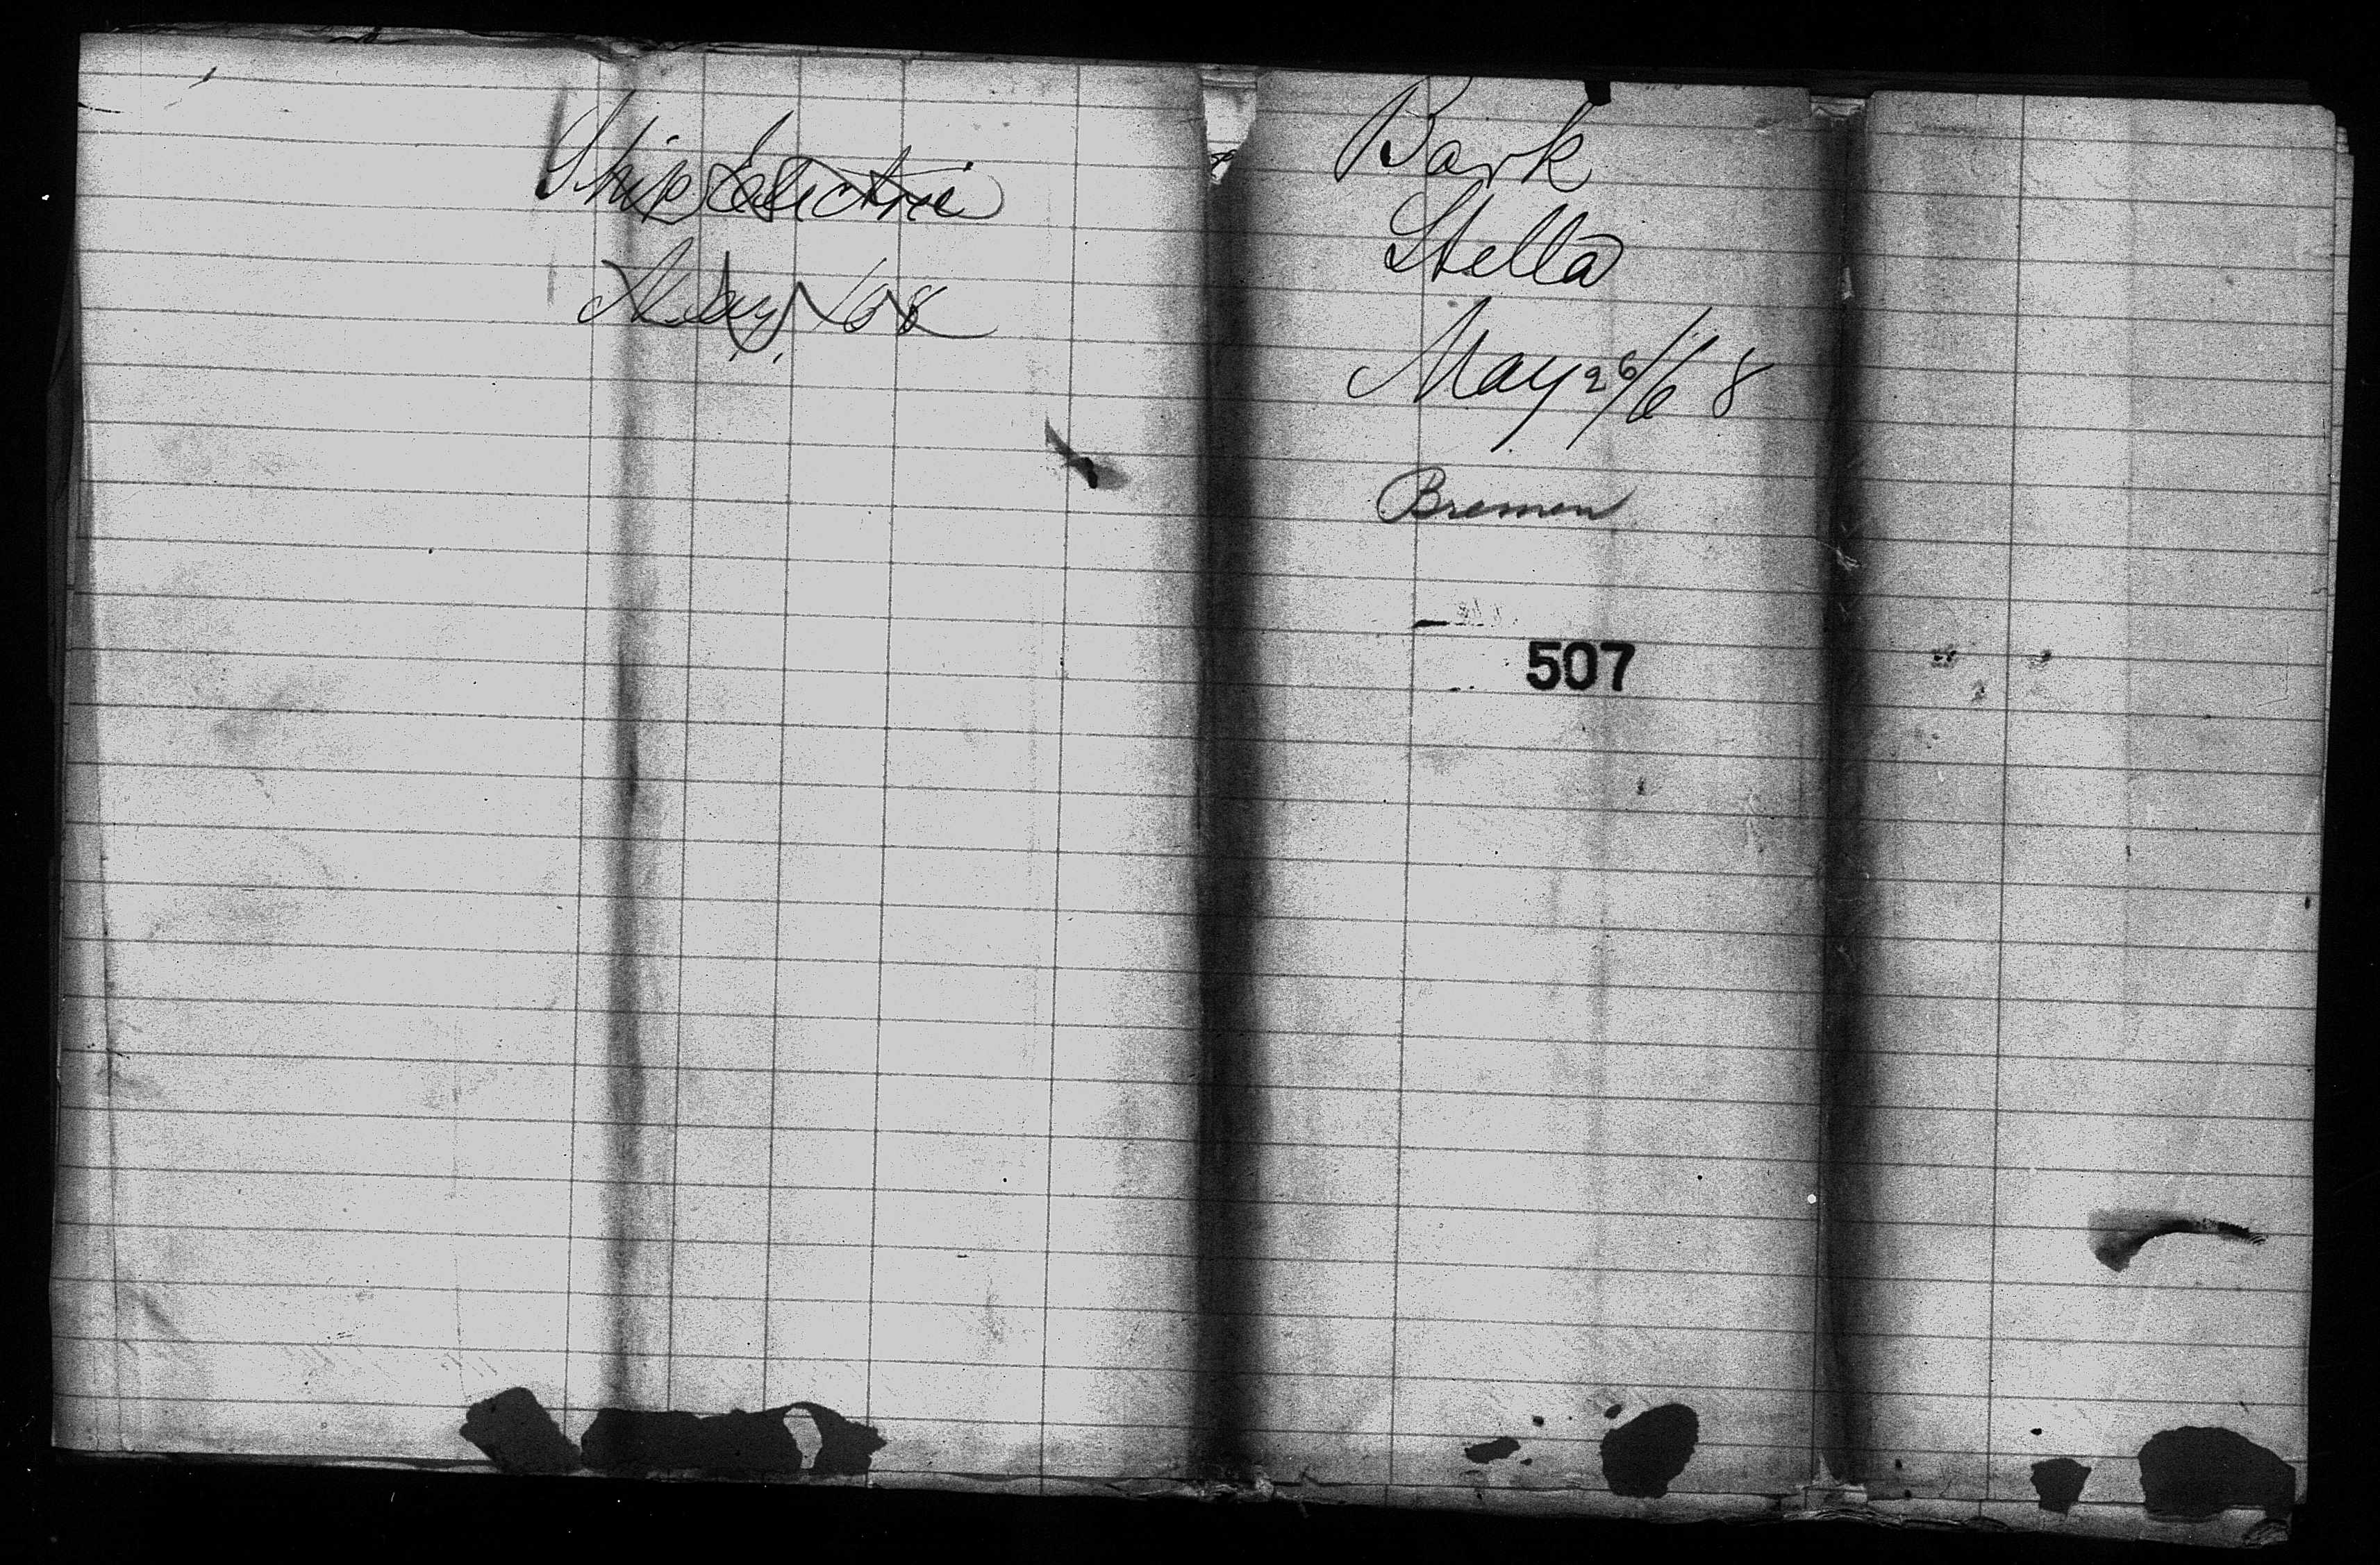 Ship Electric
May /68
Bark
Stella
May 26/68
Bremen
507